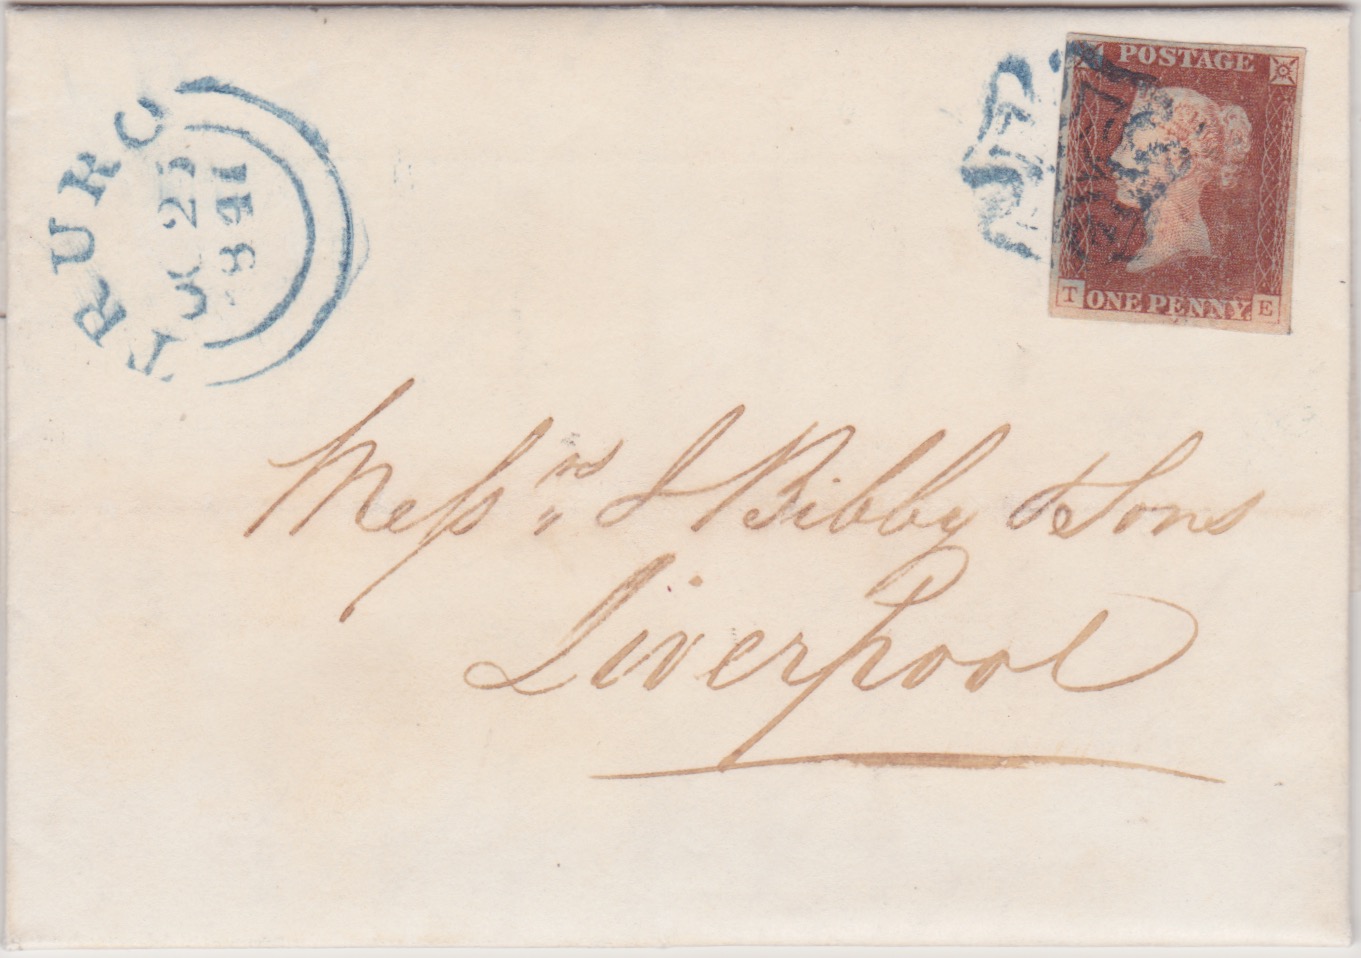 TRURO
OC 25
1841
POSTAGE
T ONE PENNY. E
Messrs J Bibby & Sons
Liverpool